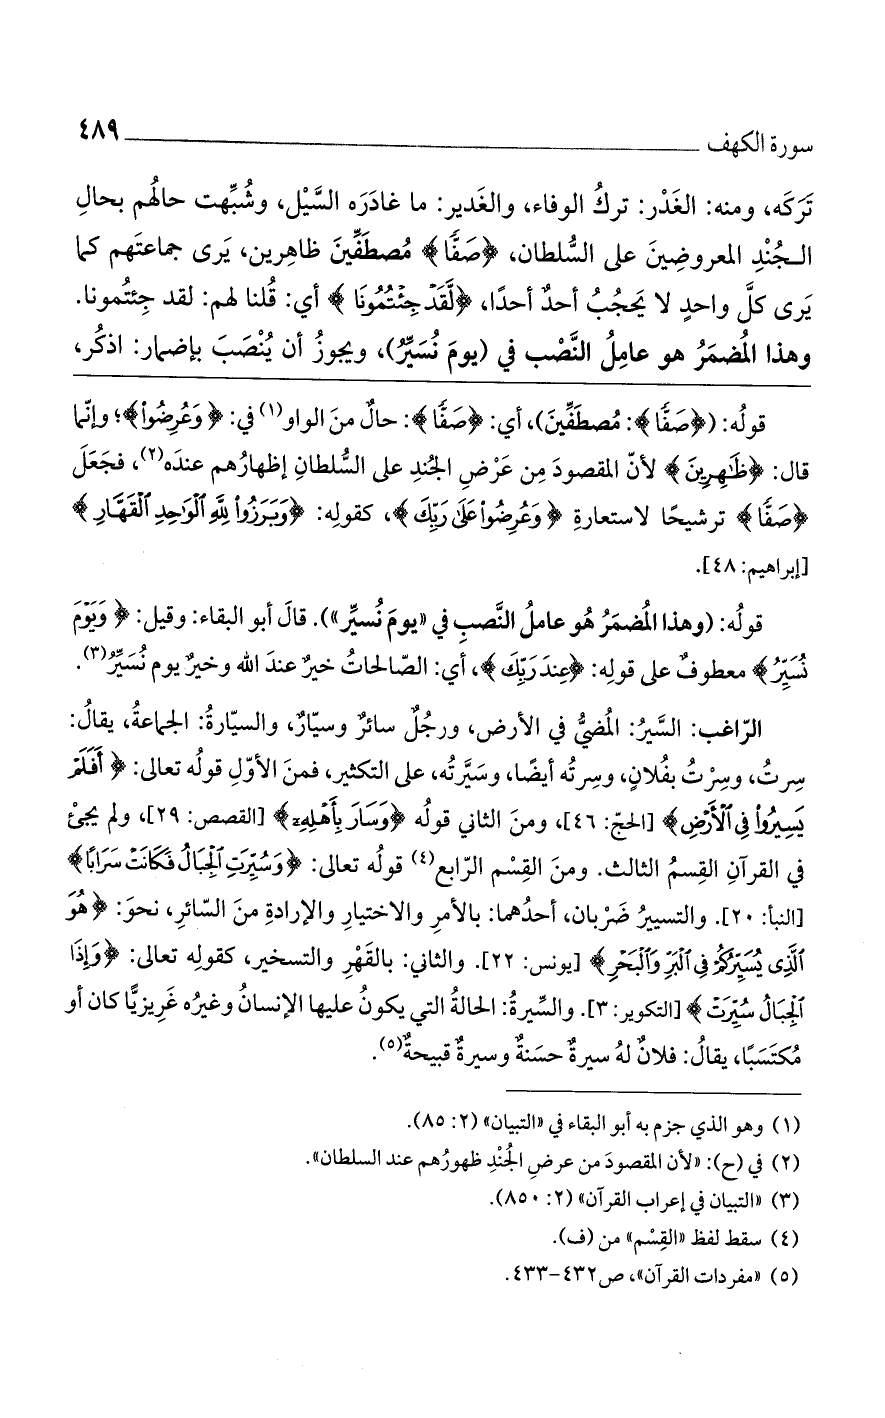 سورة الكهف ٤٨٩
تَرَكَه، ومنه: الغَدْر: تركُ الوفاء، والغَدير: ما غادَرَه السَّيْل، وشُبِّهت حالُهم بحالِ
الـجُنْدِ المعروضِينَ على السُّلطان، ﴿صَفًّا﴾ مُصطَفِّينَ ظاهِرين، يَرى جماعتَهم كما
يَرى كلَّ واحدٍ لا يَحجُبُ أحدٌ أحدًا، ﴿لَّقَدْ جِئْتُمُونَا﴾ أي: قُلنا لهم: لقد جِئتُمونا.
وهذا المُضمَرُ هو عامِلُ النَّصْب في (يومَ نُسَيِّرُ)، ويجوزُ أن يُنْصَبَ بإضمار: اذكُر،
قولُه: (﴿صَفًّا﴾: مُصطَفِّينَ)، أي: ﴿صَفًّا﴾: حالٌ منَ الواو(١) في: ﴿وَعُرِضُواْ﴾؛ وإنّما
قال: ﴿ظَٰهِرِينَ﴾ لأنّ المقصودَ مِن عَرْضِ الجُندِ على السُّلطانِ إظهارُهم عندَه(٢)، فجَعَلَ
﴿صَفًّا﴾ ترشيحًا لاستعارةِ ﴿وَعُرِضُواْ عَلَىٰ رَبِّكَ﴾، كقولِه: ﴿وَبَرَزُواْ لِلَّهِ ٱلْوَٰحِدِ ٱلْقَهَّارِ﴾
[إبراهيم: ٤٨].
قولُه: (وهذا المُضمَرُ هُو عاملُ النَّصبِ في «يومَ نُسيِّر»). قالَ أبو البقاء: وقيل: ﴿وَيَوْمَ
نُسَيِّرُ﴾ معطوفٌ على قولِه: ﴿عِندَ رَبِّكَ﴾، أي: الصّالحاتُ خيرٌ عندَ الله وخيرٌ يوم نُسَيِّرُ(٣).
الرّاغب: السَّيرُ: المُضيُّ في الأرض، ورجُلٌ سائرٌ وسيّارٌ، والسيّارةُ: الجماعةُ، يقالُ:
سِرتُ، وسِرْتُ بفُلانٍ، وسِرتُه أيضًا، وسَيَّرتُه، على التكثير، فمنَ الأوّلِ قولُه تعالى: ﴿أَفَلَمْ
يَسِيرُواْ فِي ٱلْأَرْضِ﴾ [الحجّ: ٤٦]، ومنَ الثاني قولُه ﴿وَسَارَ بِأَهْلِهِۦ﴾ [القصص: ٢٩]، ولم يجئْ
في القرآنِ القِسمُ الثالث. ومنَ القِسْم الرّابع(٤) قولُه تعالى: ﴿وَسُيِّرَتِ ٱلْجِبَالُ فَكَانَتْ سَرَابًا﴾
[النبأ: ٢٠]. والتسييرُ ضَرْبان، أحدُهما: بالأمرِ والاختيارِ والإرادةِ منَ السّائرِ، نحوَ: ﴿هُوَ
ٱلَّذِى يُسَيِّرُكُمْ فِى ٱلْبَرِّ وَٱلْبَحْرِ﴾ [يونس: ٢٢]. والثاني: بالقَهْرِ والتسخير، كقولِه تعالى: ﴿وَإِذَا
ٱلْجِبَالُ سُيِّرَتْ﴾ [التكوير: ٣]. والسِّيرةُ: الحالةُ التي يكونُ عليها الإنسانُ وغيرُه غَريزيًّا كان أو
مُكتَسَبًا، يقالُ: فلانٌ لهُ سيرةٌ حسَنةٌ وسيرةٌ قبيحةٌ(٥).
(١) وهو الذي جزم به أبو البقاء في «التبيان» (٢: ٨٥).
(٢) في (ح): «لأن المقصودَ من عرضِ الجُنْدِ ظهورُهم عند السلطان».
(٣) «التبيان في إعراب القرآن» (٢: ٨٥٠).
(٤) سقط لفظ «القِسْم» من (ف).
(٥) «مفردات القرآن»، ص٤٣٢-٤٣٣.